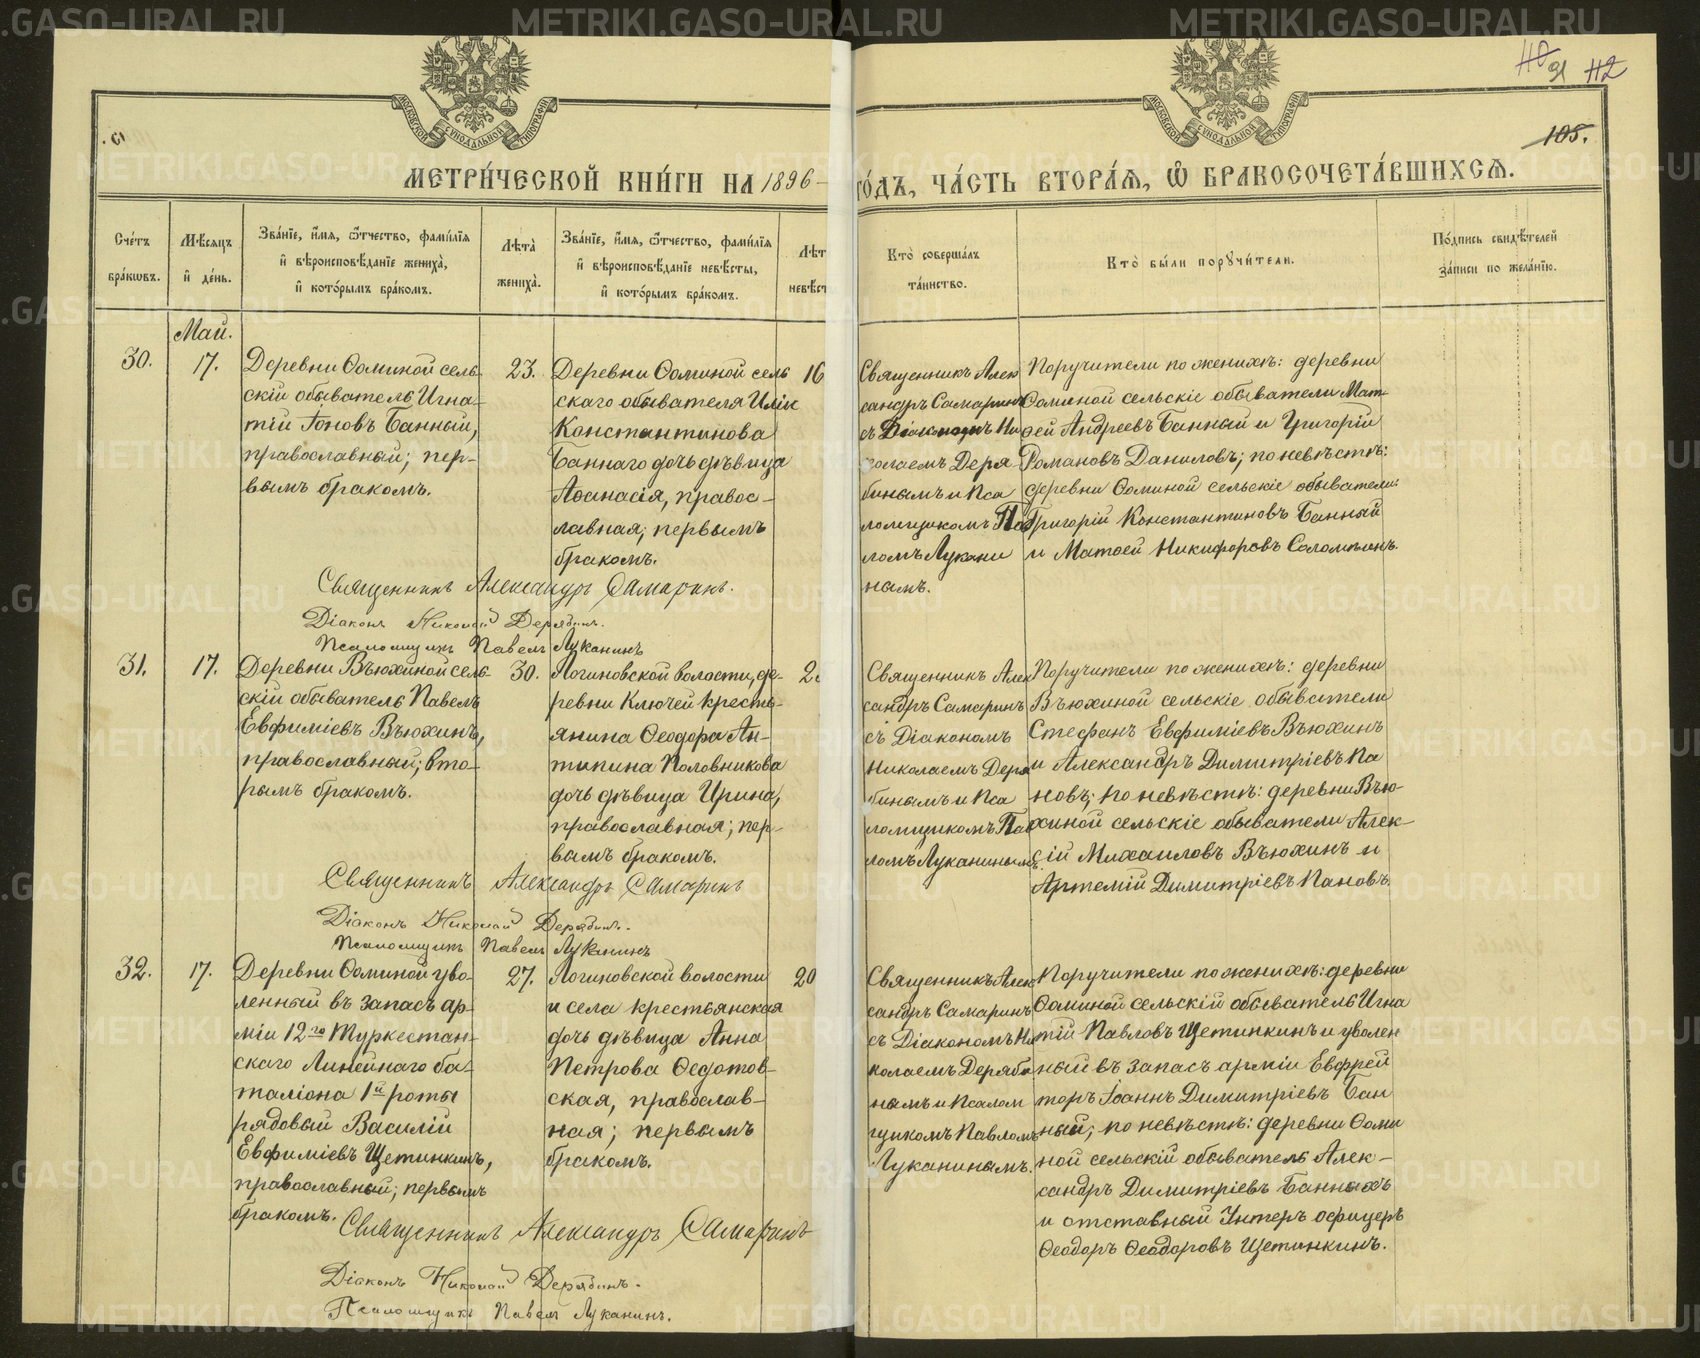 METRIKI.GASO-URAL.RU
112
105.
МОСКОВСКОЙ СѴНОДАЛЬНОЙ ТИПОГРАФІИ
МОСКОВСКОЙ СѴНОДАЛЬНОЙ ТИПОГРАФІИ
МЕТРИ́ЧЕСКОЙ КНИ́ГИ НА 1896-
ГО́ДЪ, ЧА́СТЬ ВТОРА́Я, Ѽ БРАКОСОЧЕТА́ВШИХСЯ.
Сче́тъ
бра́ковъ.
Мѣ́сяцъ
и҆ де́нь.
Зва́нїе, и҆́мя, ѻ҆́тчество, фами́лїя
и҆ вѣроисповѣ́данїе жениха̀,
и҆ кото́рымъ бра́комъ.
Лѣта̀
жениха̀.
Зва́нїе, и҆́мя, ѻ҆́тчество, фами́лїя
и҆ вѣроисповѣ́данїе невѣ́сты,
и҆ кото́рымъ бра́комъ.
Лѣт
невѣ́ст
Кто̀ соверша́лъ
та́инство.
Кто̀ бы́ли порꙋчи́тели.
По́дпись свидѣ́телей
за́писи по жела́нїю.
Май.
30.
17.
Деревни Ѳоминой сель-
скій обыватель Игна-
тій Іоновъ Банный,
православный; пер-
вымъ бракомъ.
23.
Деревни Ѳоминой сель
скаго обывателя Иліи
Константинова
Баннаго дочь дѣвица
Аѳанасія, правос-
лавная; первымъ
бракомъ.
16
Священникъ Алек
сандръ Самаринъ
съ Діакономъ Ни
колаемъ Деря
бинымъ и Пса
ломщикомъ Пав
ломъ Лукани
нымъ.
Поручители по женихѣ: деревни
Ѳоминой сельскіе обыватели Мат-
ѳей Андреевъ Банный и Григорій
Романовъ Даниловъ; по невѣстѣ:
деревни Ѳоминой сельскіе обыватели:
Григорій Константиновъ Банный
и Матѳей Никифоровъ Соломеинъ.
Священникъ Александръ Самаринъ.
Діаконъ Николай Дерябинъ.
Псаломщикъ Павелъ Луканинъ
31.
17.
Деревни Вьюхиной сель-
скій обыватель Павелъ
Евфиміевъ Вьюхинъ,
православный; вто-
рымъ бракомъ.
30.
Логиновской волости, де-
ревни Ключей кресть-
янина Ѳеодора Ан-
типина Половникова
дочь дѣвица Ирина,
православная; пер-
вымъ бракомъ.
Священникъ Алек
сандръ Самаринъ
съ Діакономъ
Николаемъ Деря
бинымъ и Пса
ломщикомъ Пав
ломъ Луканинымъ.
Поручители по женихѣ: деревни
Вьюхиной сельскіе обыватели
Стефанъ Евфиміевъ Вьюхинъ
и Александръ Димитріевъ Па
новъ; по невѣстѣ: деревни Вью-
хиной сельскіе обыватели Алек-
сій Михаиловъ Вьюхинъ и
Артемій Димитріевъ Пановъ.
Священникъ Александръ Самаринъ
Діаконъ Николай Дерябинъ.
Псаломщикъ Павелъ Луканинъ
32.
17.
Деревни Ѳоминой уво-
ленный въ запасъ ар-
міи 12-го Туркестан-
скаго Линейнаго ба-
таліона 1й роты
рядовый Василій
Евфиміевъ Щетинкинъ,
православный; первымъ
бракомъ.
27.
Логиновской волости
и села крестьянская
дочь дѣвица Анна
Петрова Ѳедотов-
ская, православ-
ная; первымъ
бракомъ.
20
Священникъ Алек
сандръ Самаринъ
съ Діакономъ Ни
колаемъ Деряби
нымъ и Псалом
щикомъ Павломъ
Луканинымъ.
Поручители по женихѣ: деревни
Ѳоминой сельскій обыватель Игна
тій Павловъ Щетинкинъ и уволен
ный въ запасъ арміи Евфрей
торъ Іоаннъ Димитріевъ Бан
ный; по невѣстѣ: деревни Ѳоми
ной сельскій обыватель Алек-
сандръ Димитріевъ Банныхъ
и отставный Унтеръ офицеръ
Ѳеодоръ Ѳеодоровъ Щетинкинъ.
Священникъ Александръ Самаринъ
Діаконъ Николай Дерябинъ.
Псаломщикъ Павелъ Луканинъ.